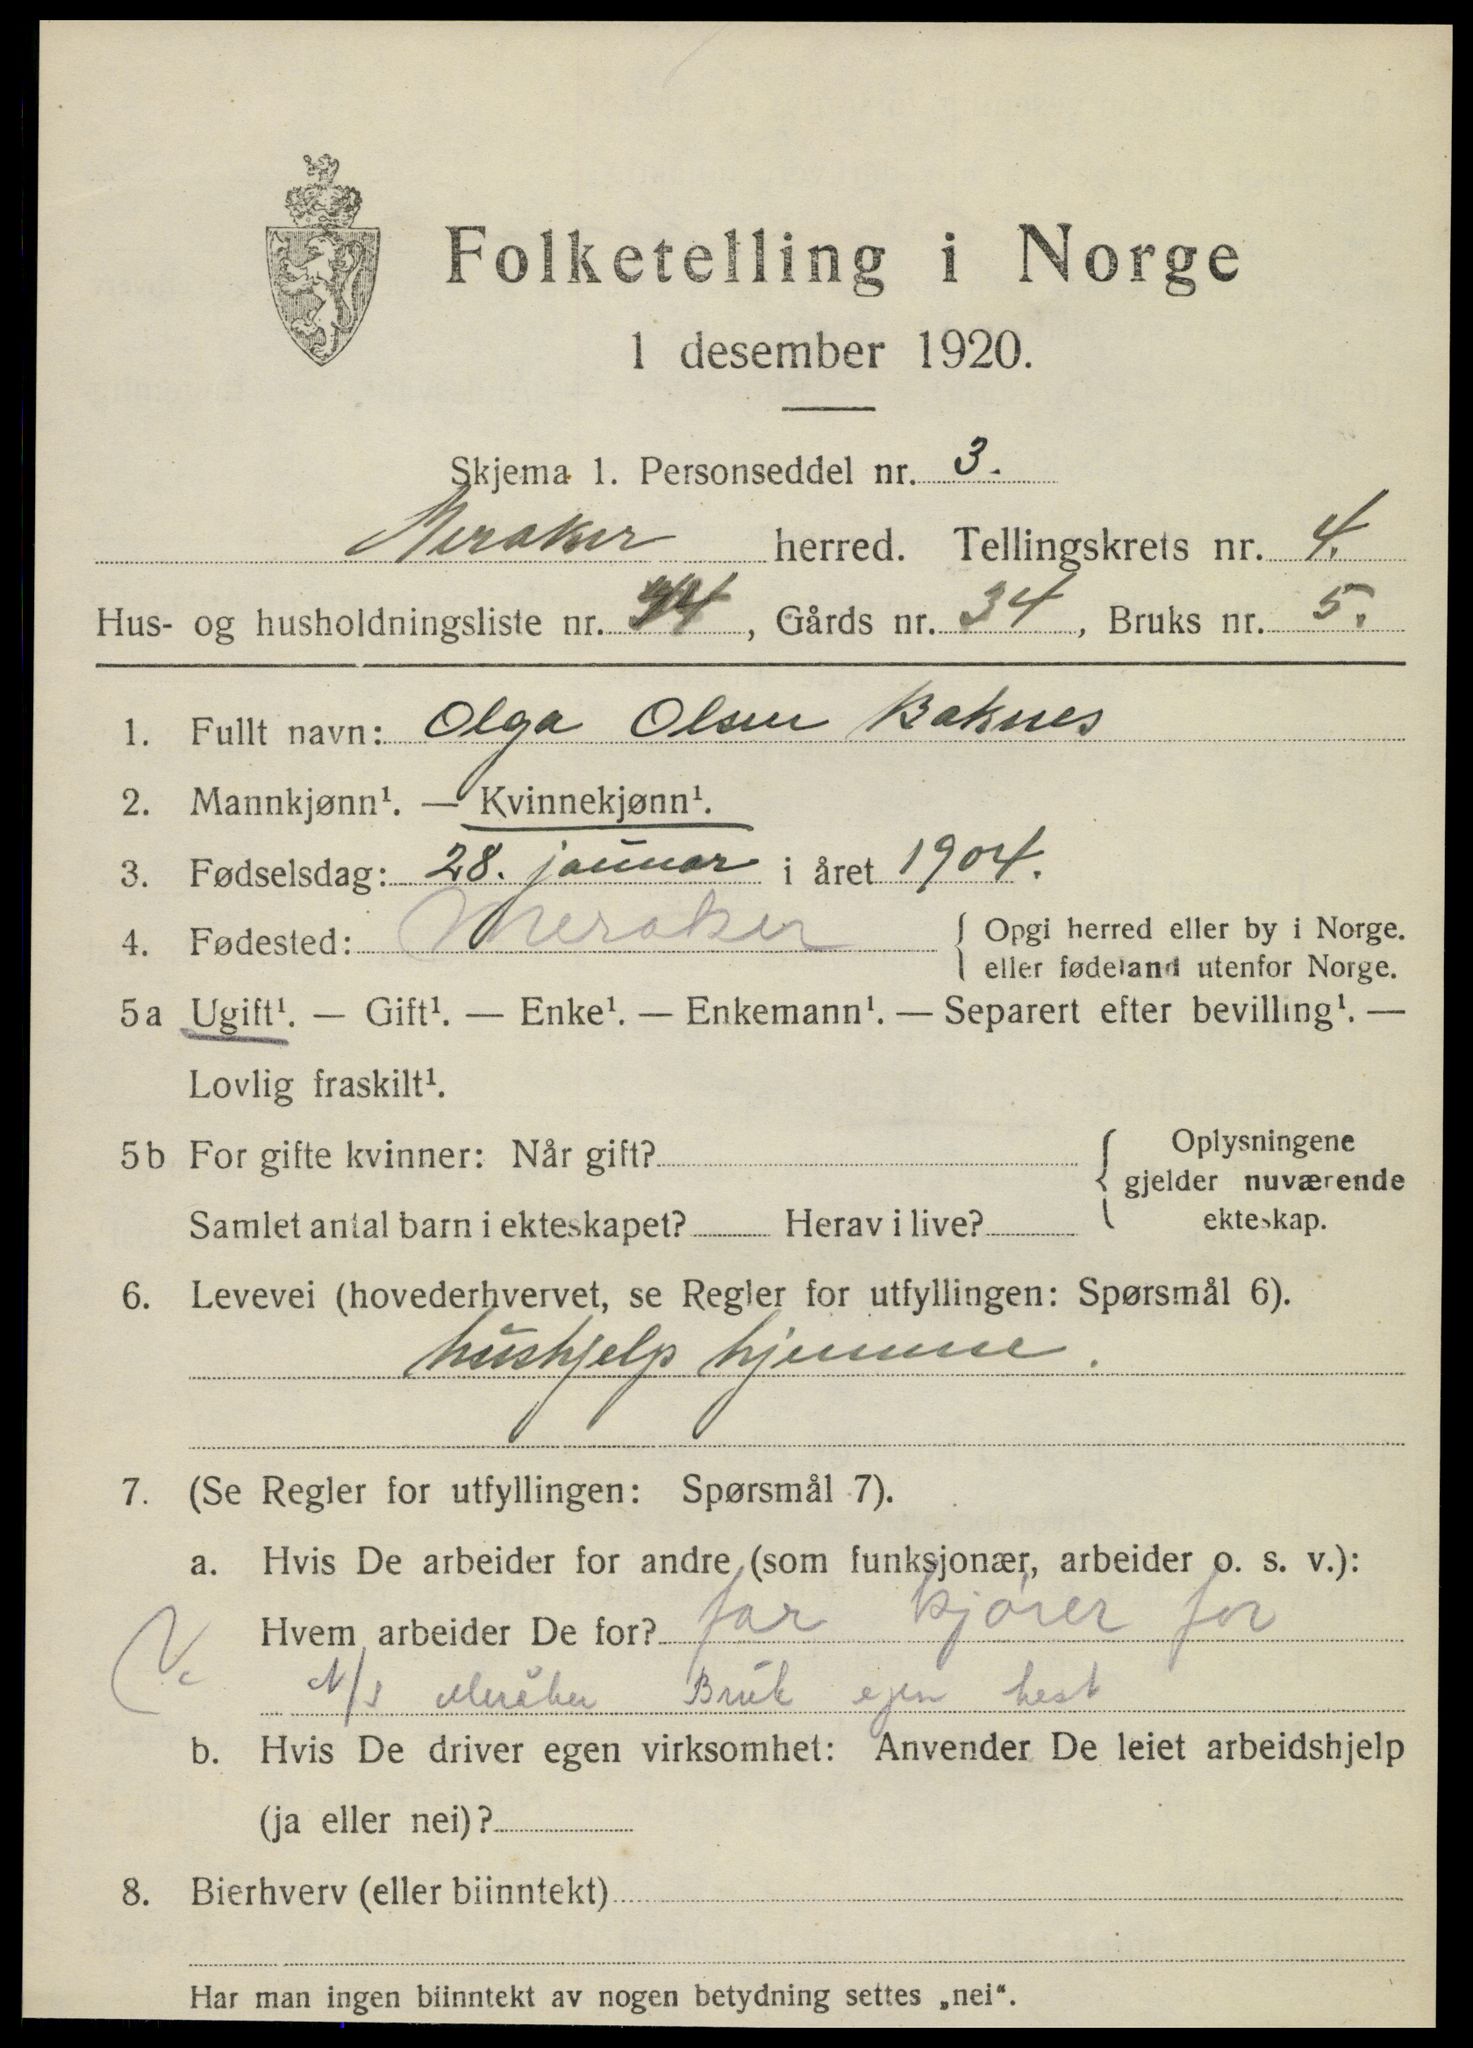 Folketelling i Norge
1 desember 1920.
Skjema 1. Personseddel nr. 3.
Meraker herred. Tellingskrets nr. 4.
Hus- og husholdningsliste nr. , Gårds nr. 34, Bruks nr. 5.
1. Fullt navn: Olga Olsen Baknes
2. Mannkjønn¹. — Kvinnekjønn¹.
3. Fødselsdag: 28. januar i året 1904.
4. Fødested: Meraker { Opgi herred eller by i Norge.
eller fødeland utenfor Norge.
5 a Ugift¹. — Gift¹. — Enke¹. — Enkemann¹. — Separert efter bevilling¹. —
Lovlig fraskilt¹.
5 b For gifte kvinner: Når gift? { Oplysningene
gjelder nuværende
Samlet antal barn i ekteskapet? Herav i live? ekteskap.
6. Levevei (hovederhvervet, se Regler for utfyllingen: Spørsmål 6).
hushjelp hjemme.
7. (Se Regler for utfyllingen: Spørsmål 7).
a. Hvis De arbeider for andre (som funksjonær, arbeider o. s. v.):
Hvem arbeider De for? far kjører for
A/S Meråker Bruk egen hest
b. Hvis De driver egen virksomhet: Anvender De leiet arbeidshjelp
(ja eller nei)?
8. Bierhverv (eller biinntekt)
Har man ingen biinntekt av nogen betydning settes „nei“.